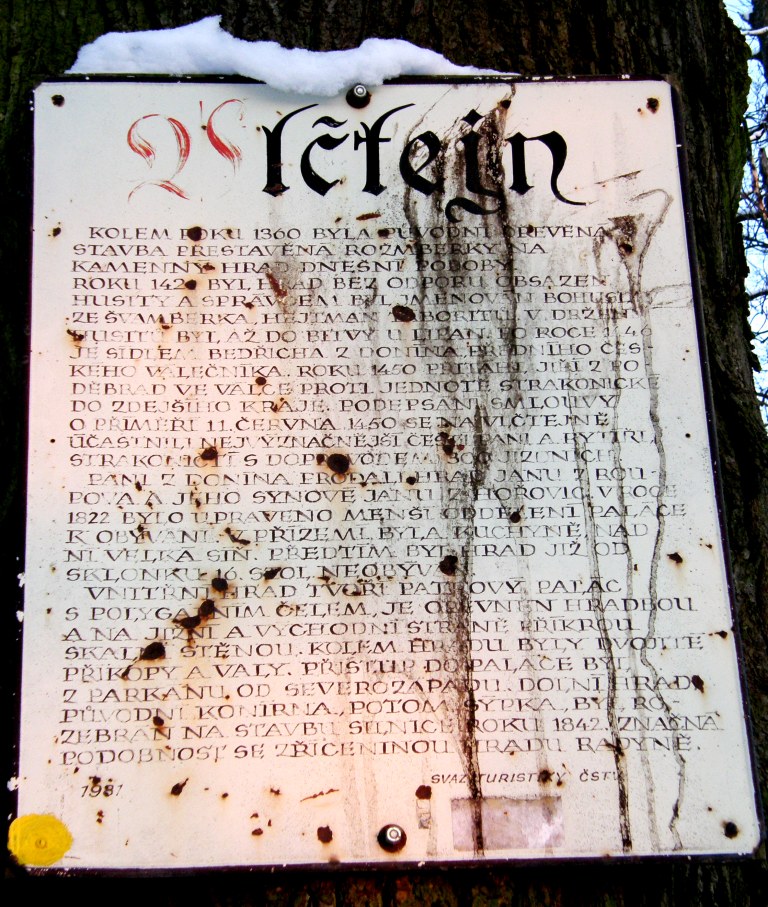 Vlčtejn
KOLEM ROKU 1360 BYLA PŮVODNÍ DŘEVĚNÁ
STAVBA PŘESTAVĚNA ROŽMBERKY NA
KAMENNÝ HRAD DNEŠNÍ PODOBY.
ROKU 142 BYL HRAD BEZ ODPORU OBSAZEN
HUSITY A SPRÁVCEM BYL JMENOVÁN BOHUSLAV
ZE ŠVAMBERKA, HEJTMAN TÁBORITŮ. V DRŽENÍ
HUSITŮ BYL AŽ DO BITVY U LIPAN. PO ROCE
JE SÍDLEM BEDŘICHA Z DONÍNA, PŘEDNÍHO ČES-
KÉHO VÁLEČNÍKA. ROKU 1450 PŘITÁHL JIŘÍ Z PO-
DĚBRAD VE VÁLCE PROTI JEDNOTĚ STRAKONICKÉ
DO ZDEJŠÍHO KRAJE. PODEPSÁNÍ SMLOUVY
O PŘÍMĚŘÍ 11. ČERVNA 1450 SE NA VLČTEJNĚ
ÚČASTNILI NEJVÝZNAČNĚJŠÍ ČEŠTÍ PÁNI A RYTÍŘI,
STRAKONIČTÍ S DOPROVODEM 300 JÍZDNÍCH.
PÁNI Z DONÍNA PRODALI HRAD JANU Z ROU-
POVA A JEHO SYNOVÉ JANU Z HOŘOVIC. V ROCE
1822 BYLO UPRAVENO MENŠÍ ODDĚLENÍ PALÁCE
K OBÝVÁNÍ. V PŘÍZEMÍ BYLA KUCHYNĚ, NAD
NÍ VELKÁ SÍŇ. PŘEDTÍM BYL HRAD JIŽ OD
SKLONKU 16. STOL. NEOBÝVÁN.
VNITŘNÍ HRAD TVOŘÍ PATROVÝ PALÁC
S POLYGÁLNÍM ČELEM, JE OPEVNĚN HRADBOU
A NA JIŽNÍ A VÝCHODNÍ STRANĚ PŘÍKROU
SKALNÍ STĚNOU. KOLEM HRADU BYLY DVOJITÉ
PŘÍKOPY A VALY. PŘÍSTUP DO PALÁCE BYL
Z PARKÁNU OD SEVEROZÁPADU. DOLNÍ HRAD,
PŮVODNÍ KONÍRNA, POTOM SÝPKA, BYL RO-
ZEBRÁN NA STAVBU SILNICE ROKU 1842. ZNAČNÁ
PODOBNOST SE ZŘÍCENINOU HRADU RADYNĚ.
1981
SVAZ TURISTIKY ČSTV